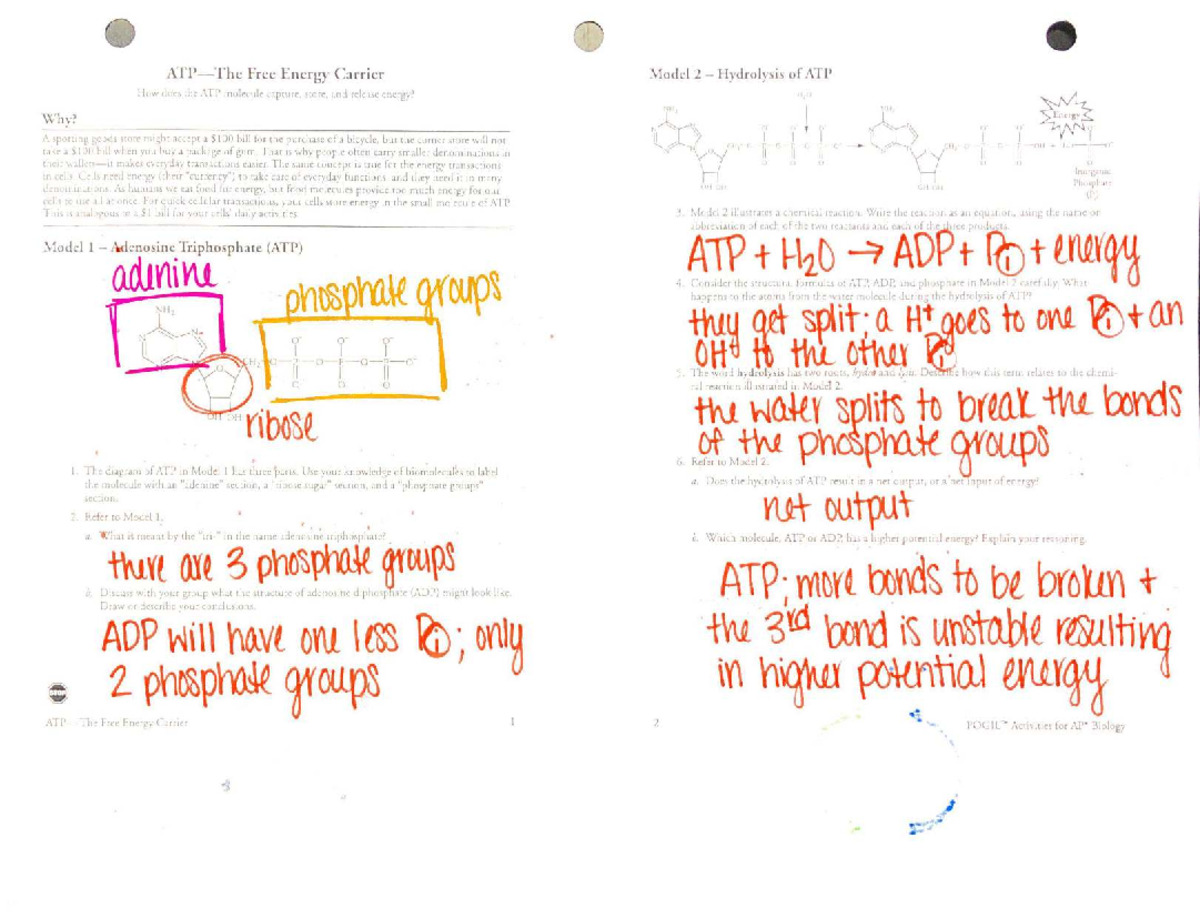 ATP—The Free Energy Carrier
How does the ATP molecule capture, store, and release energy?
Why?
A sporting goods store might accept a $100 bill for the purchase of a bicycle, but the corner store will not
take a $100 bill when you buy a package of gum. That is why people often carry smaller denominations in
their wallet—it makes everyday transactions easier. The same concept is true for the energy transactions
in cells. Cells need energy (their "currency") to take care of everyday functions, and they need it in many
denominations. As humans we eat food for energy, but food molecules provide too much energy for our
cells to use all at once. For quick cellular transactions, your cells store energy in the small molecule of ATP.
This is analogous to a $1 bill for your cells' daily activities.
Model 1 – Adenosine Triphosphate (ATP)
adenine
phosphate groups
NH₂
CH₂
OH OH
ribose
1. The diagram of ATP in Model 1 has three parts. Use your knowledge of biomolecules to label
the molecule with an "adenine" section, a "ribose sugar" section, and a "phosphate groups"
section.
2. Refer to Model 1.
a. What is meant by the "tri-" in the name adenosine triphosphate?
there are 3 phosphate groups
b. Discuss with your group what the structure of adenosine diphosphate (ADP) might look like.
Draw or describe your conclusions.
ADP will have one less Pi; only
2 phosphate groups
STOP
ATP—The Free Energy Carrier 1
Model 2 – Hydrolysis of ATP
H₂O
NH₂ NH₂
Energy
OH OH OH OH
Inorganic
Phosphate
(Pi)
3. Model 2 illustrates a chemical reaction. Write the reaction as an equation, using the name or
abbreviation of each of the two reactants and each of the three products.
ATP + H₂O → ADP + Pi + energy
4. Consider the structural formulas of ATP, ADP, and phosphate in Model 2 carefully. What
happens to the atoms from the water molecule during the hydrolysis of ATP?
they get split; a H⁺ goes to one Pi + an
OH to the other Pi
5. The word hydrolysis has two roots, hydro and lysis. Describe how this term relates to the chemi-
cal reaction illustrated in Model 2.
the water splits to break the bonds
of the phosphate groups
6. Refer to Model 2.
a. Does the hydrolysis of ATP result in a net output, or a net input of energy?
net output
b. Which molecule, ATP or ADP, has a higher potential energy? Explain your reasoning.
ATP; more bonds to be broken +
the 3rd bond is unstable resulting
in higher potential energy
2 POGIL™ Activities for AP* Biology